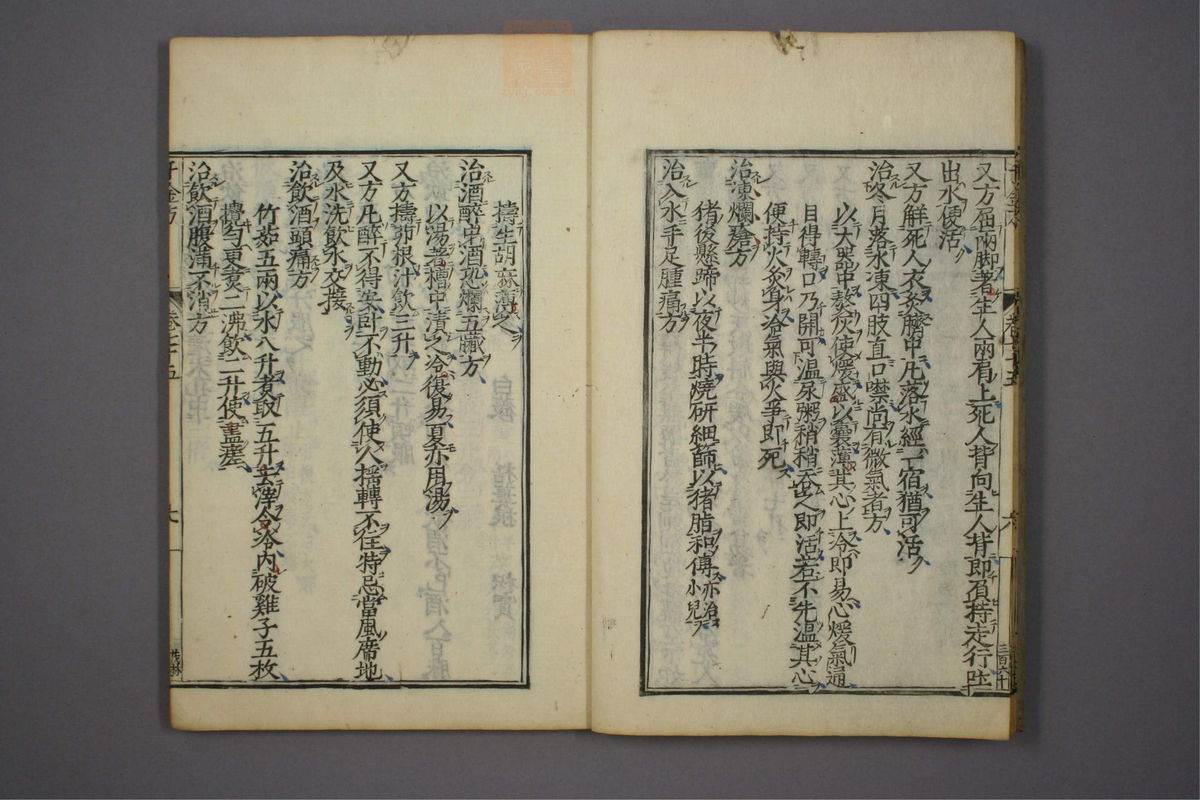 又方屈兩脚著生人兩肩上死人背向生人背即負持走行吐
出水便活
又方解死人衣灸臍中凡落水經一宿猶可活
治冬月落水凍四肢直口噤尚有微氣者方
以大器中熬灰使煖盛以囊薄其心上冷即易心煖氣通
目得轉口乃開可溫尿粥稍稍吞之即活若不先溫其心
便持火灸身冷氣與火爭即死
治凍爛瘡方
猪後懸蹄以夜半時燒研細篩以猪脂和傅亦治小兒
治入水手足腫痛方
三百六十
擣生胡麻薄之
治酒醉中酒恐爛五臟方
以湯著槽中漬之冷復易夏亦用湯
又方擣茆根汁飲三升
又方凡醉不得安卧不動必須使人搖轉不住特忌當風席地
及水洗飲水交接
治飲酒頭痛方
竹茹五兩以水八升煮取五升去滓令冷內破雞子五枚
攪勻更煑二沸飲二升使盡瘥
治飲酒腹滿不消方
千金方
卷二十五